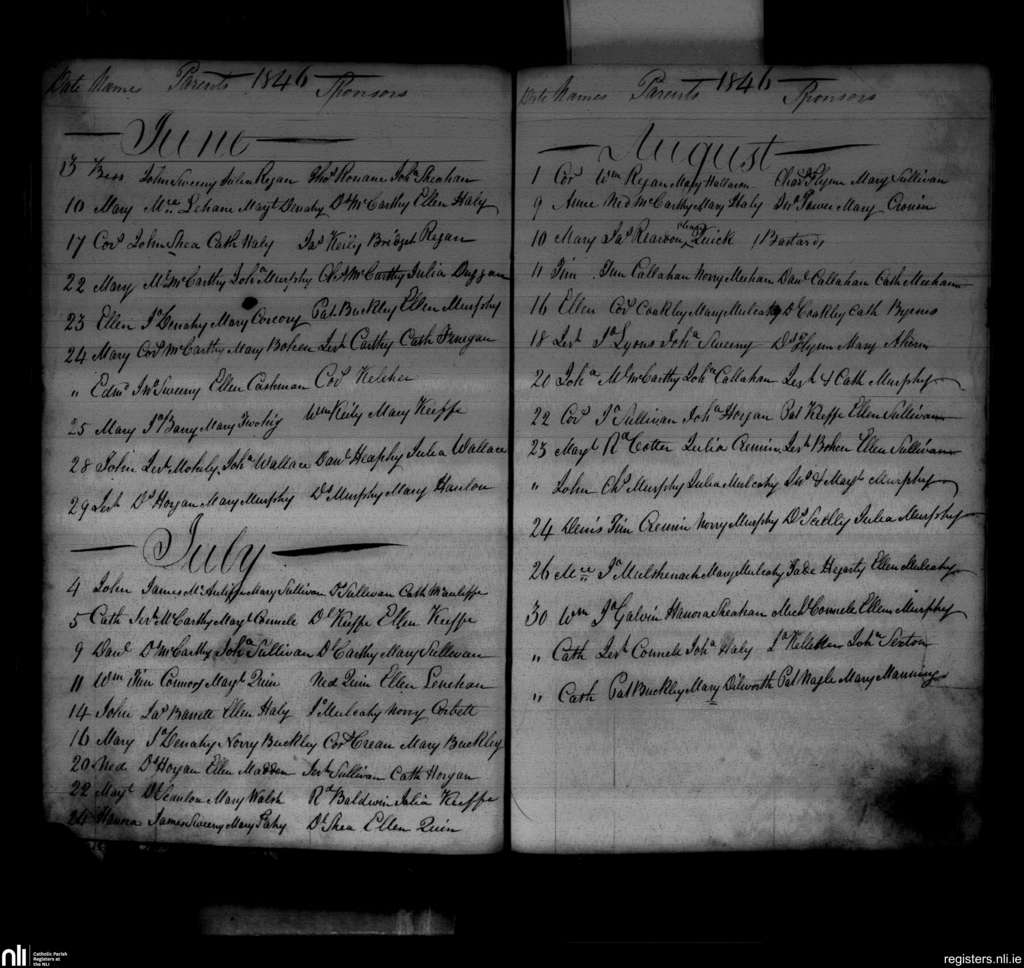 Date Names Parents 1846 Sponsors
June
13 Bess John Sweeny Julia Regan Thos Ronane Joha Sheahan
10 Mary Mce Lehane Mayt Denahy Ds McCarthy Ellen Haly
17 Cors John Shea Cath Haly Jas Keily Bridget Regan
22 Mary McCarthy Joha Murphy McCarthy Julia Duggan
23 Ellen Js Denahy Mary Corcory Pat Buckley Ellen Murphy
24 Mary Cors McCarthy Mary Bohen Jerh Carthy Cath Finegan
" Edmd Jno Sweeny Ellen Cashman Cors Kelcher
25 Mary Barry Mary Twohig Wm Keily Mary Keeffe
28 John Jerh Mohily Joha Wallace Danl Heaphy Julia Wallace
29 Jerh Ds Horgan Mary Murphy Ds Murphy Mary Hanlon
July
4 John James McAuliffe Mary Sullivan Sullivan Cath McAuliffe
5 Cath Jerh McCarthy Mayt Connele Dl Keeffe Ellen Keeffe
9 Danl Ds McCarthy Joha Sullivan Ds Carthy Mary Sullivan
11 Wm Tim Connors Mayt Quin Ned Quin Ellen Lenehan
14 John Jas Barrett Ellen Haly Mulcahy Norry Corbett
16 Mary Js Denahy Norry Buckley Cors Crean Mary Buckley
20 Ned Ds Horgan Ellen Madden Jerh Sullivan Cath Horgan
22 Mayt Dl Scanlon Mary Walsh Rd Baldwin Julia Keeffe
24 Hanora James Sweeny Mary Dl Shea Ellen Quin
Date Names Parents 1846 Sponsors
August
1 Cors Wm Regan Mary Halloron Chars Flynn Mary Sullivan
9 Anne Ned McCarthy Mary Haly Power Mary Cronin
10 Mary Jas Reardon Quick / Bastards
11 Tim Tim Callahan Norry Meehan Danl Callahan Cath Meehan
16 Ellen Cors Coakley Mary Mulcahy Ds Coakley Cath Byrens
18 Jerh Js Lyons Joha Sweeny Ds Flynn Mary Ahern
20 Joha Ml McCarthy Joha Callahan Jerh & Cath Murphy
22 Cors Js Sullivan Joha Horgan Pat Keeffe Ellen Sullivan
23 Mayt Rd Cotter Julia Cremin Jerh Bohen Ellen Sullivan
" John Chs Murphy Julia Mulcahy Jno & Mayt Murphy
24 Denis Tim Cremin Norry Murphy Ds Scully Julia Murphy
26 Mce Mary Mulcahy Hegarty Ellen Mulcahy
30 Wm Js Galvin Hanora Sheahan Michl Connele Ellen Murphy
" Cath Jerh Connele Joha Haly Js Kelleher Joha Sexton
" Cath Pat Buckley Mary Dilworth Pat Nagle Mary Manning
nli Catholic Parish
Registers at
the NLI
registers.nli.ie